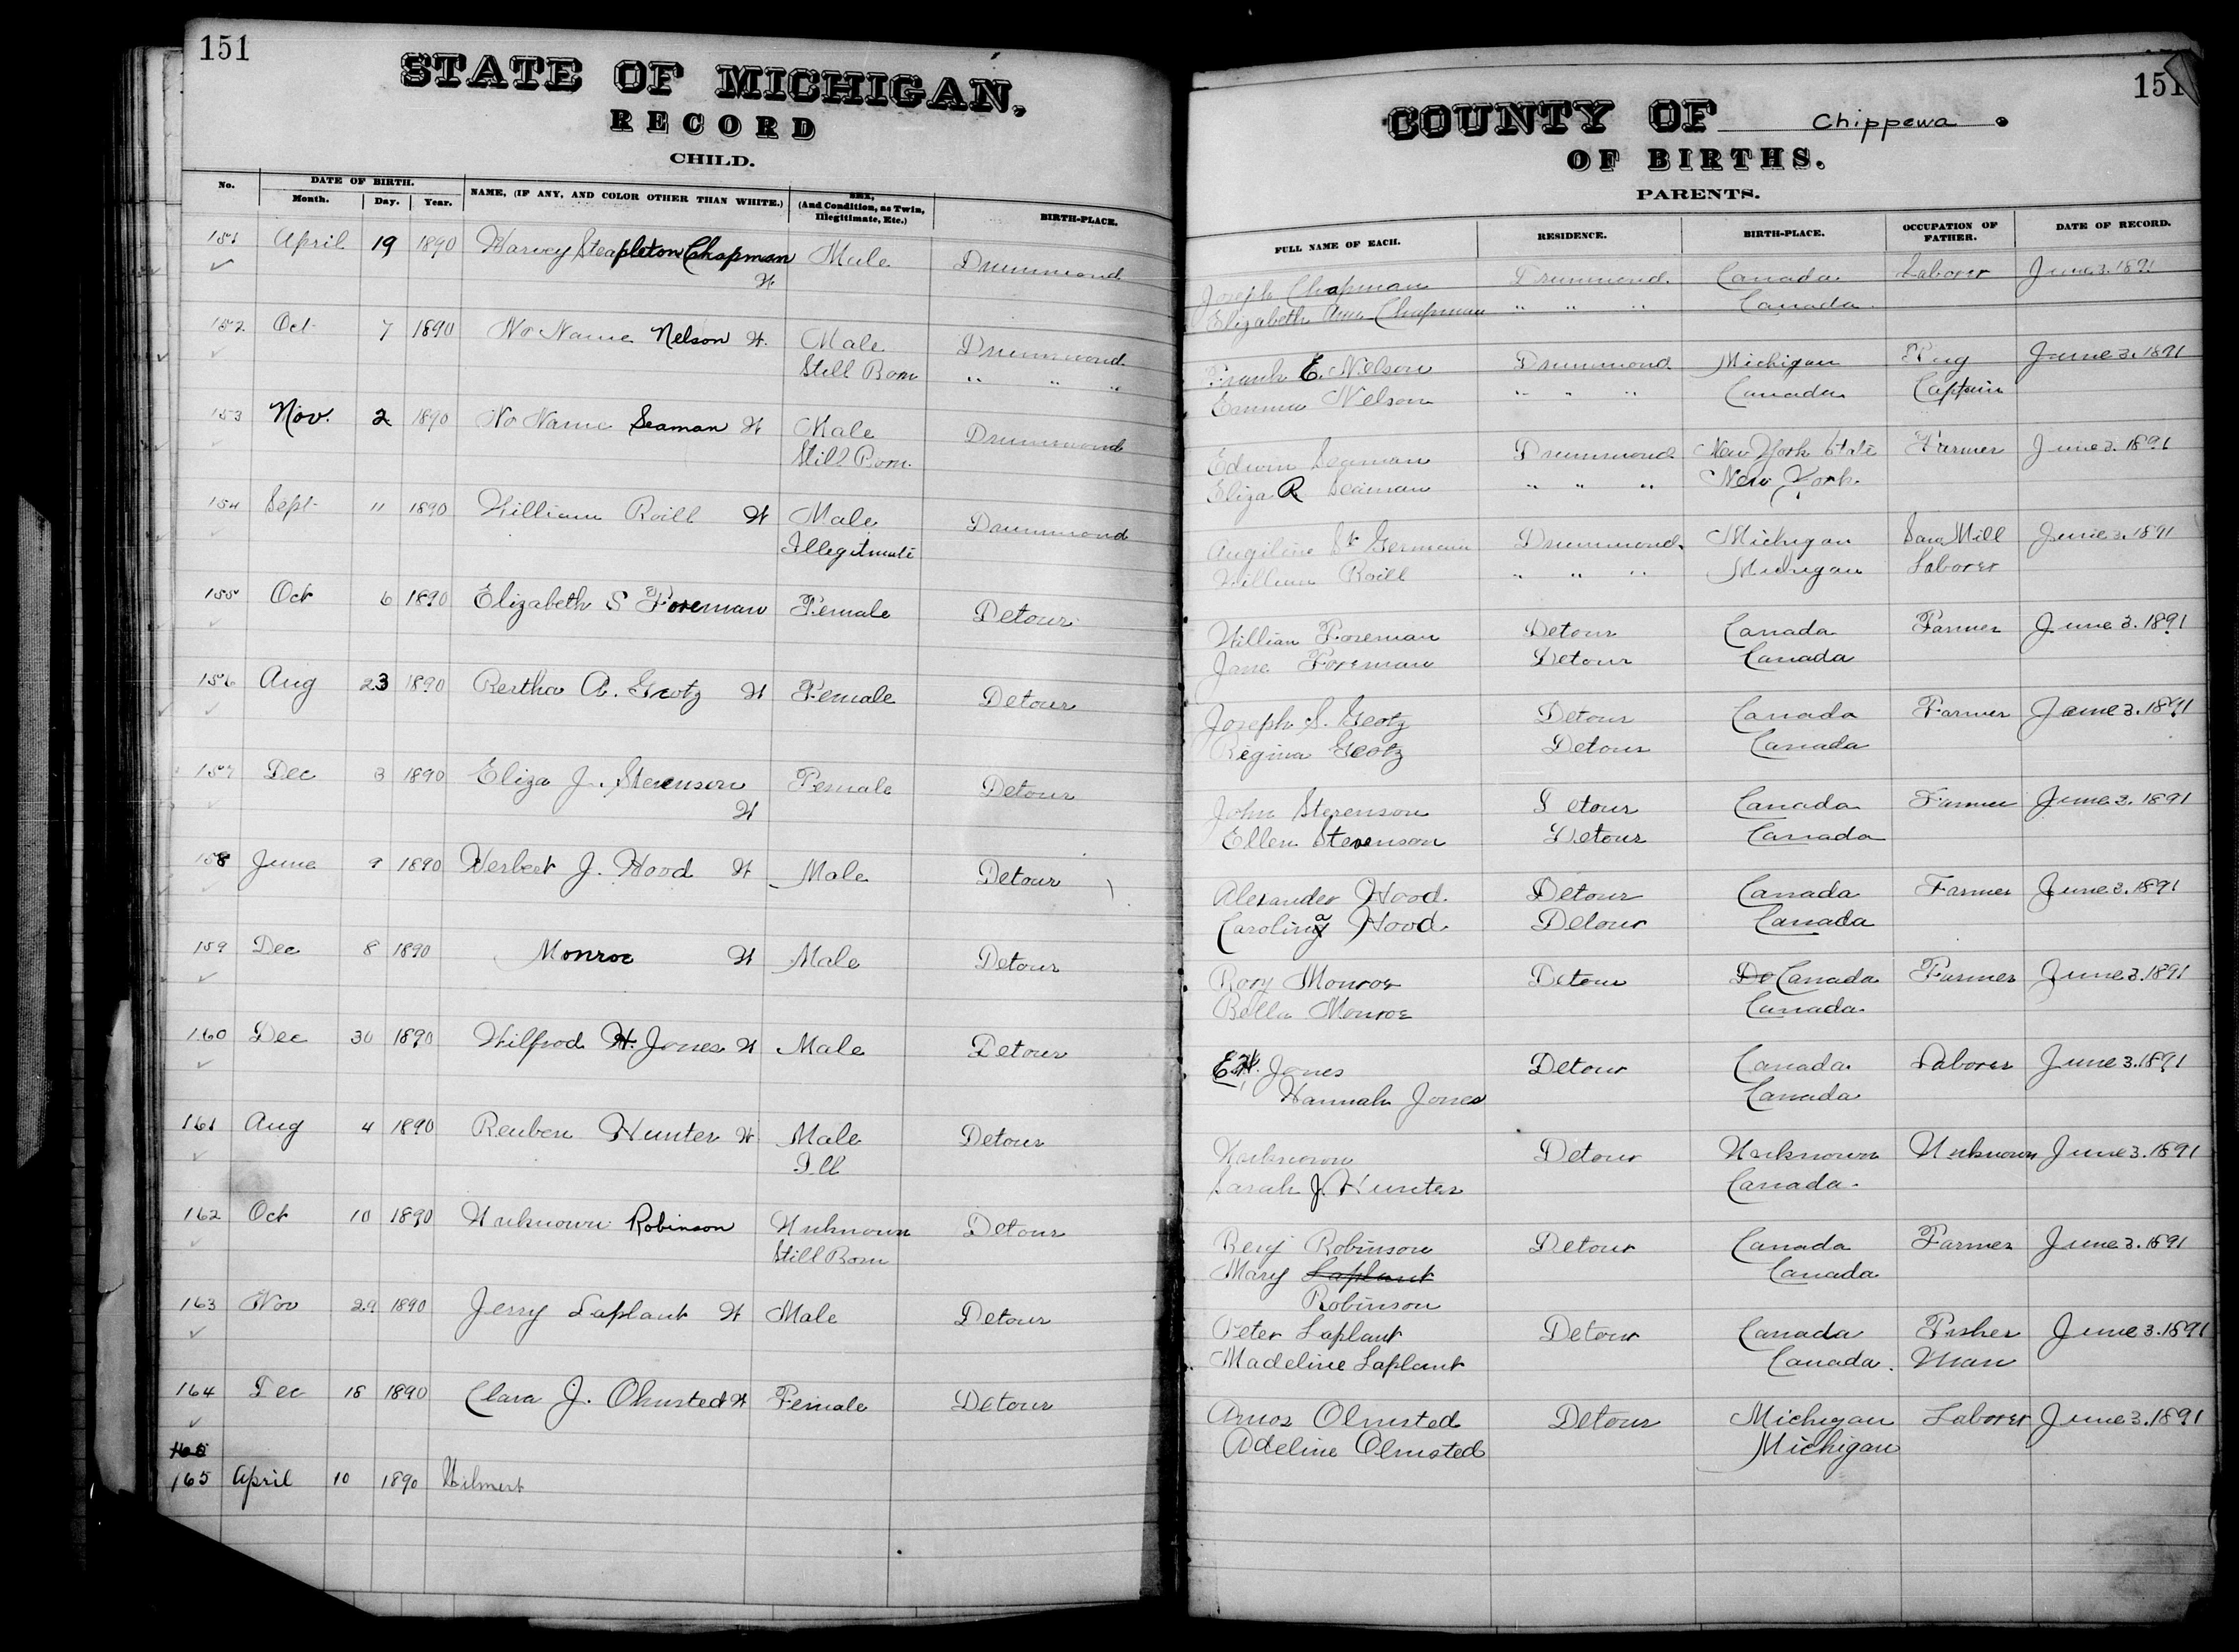 151
STATE OF MICHIGAN,
RECORD
CHILD.
No. DATE OF BIRTH. NAME, (IF ANY, AND COLOR OTHER THAN WHITE.) SEX, (And Condition, as Twin, Illegitimate, Etc.) BIRTH-PLACE.
Month. Day. Year.
151 April 19 1890 Harvey Steapleton Chapman Male Drummond
W
152 Oct 7 1890 No Name Nelson W. Male Drummond
Still Born " " "
153 Nov. 2 1890 No Name Seaman W Male Drummond
Still Born.
154 Sept 11 1890 William Roill W Male Drummond
Illegitimate
155 Oct 6 1890 Elizabeth S Foreman Female Detour
156 Aug 23 1890 Bertha A. Geotz W Female Detour
157 Dec 3 1890 Eliza J. Stevenson Female Detour
W
158 June 9 1890 Herbert J. Hood W Male Detour
159 Dec 8 1890 Monroe W Male Detour
160 Dec 30 1890 Wilfrod H. Jones W Male Detour
161 Aug 4 1890 Reuben Hunter W Male Detour
Ill
162 Oct 10 1890 Unknown Robinson Unknown Detour
Still Born
163 Nov 29 1890 Jerry Laplant W Male Detour
164 Dec 18 1890 Clara J. Olmsted W Female Detour
165
165 April 10 1890 Wilmert
151
COUNTY OF Chippewa.
OF BIRTHS.
PARENTS.
FULL NAME OF EACH. RESIDENCE. BIRTH-PLACE. OCCUPATION OF FATHER. DATE OF RECORD.
Joseph Chapman Drummond. Canada Laborer June 3. 1891
Elizabeth Ann Chapman " " " Canada
Frank E. Nelson Drummond Michigan Tug June 3. 1891
Emma Nelson " " " Canada Captain
Edwin Seaman Drummond New York State Farmer June 3. 1891
Eliza R Seaman " " " New York
Angiline St Germain Drummond. Michigan Saw Mill June 3. 1891
William Roill " " " Michigan Laborer
William Foreman Detour Canada Farmer June 3. 1891
Jane Foreman Detour Canada
Joseph S. Geotz Detour Canada Farmer June 3. 1891
Regina Geotz Detour Canada
John Stevenson Detour Canada Farmer June 3. 1891
Ellen Stevenson Detour Canada
Alexander Hood. Detour Canada Farmer June 3. 1891
Carolina Hood Detour Canada
Rory Monroe Detour De Canada Farmer June 3. 1891
Bella Monroe Canada
Jones Detour Canada. Laborer June 3. 1891
Hannah Jones Canada
Unknown Detour Unknown Unknown June 3. 1891
Sarah J. Hunter Canada.
Benj Robinson Detour Canada Farmer June 3. 1891
Mary Laplant Canada
Robinson
Peter Laplant Detour Canada Fisher June 3. 1891
Madeline Laplant Canada. man
Amos Olmsted Detour Michigan Laborer June 3. 1891
Adeline Olmsted Michigan